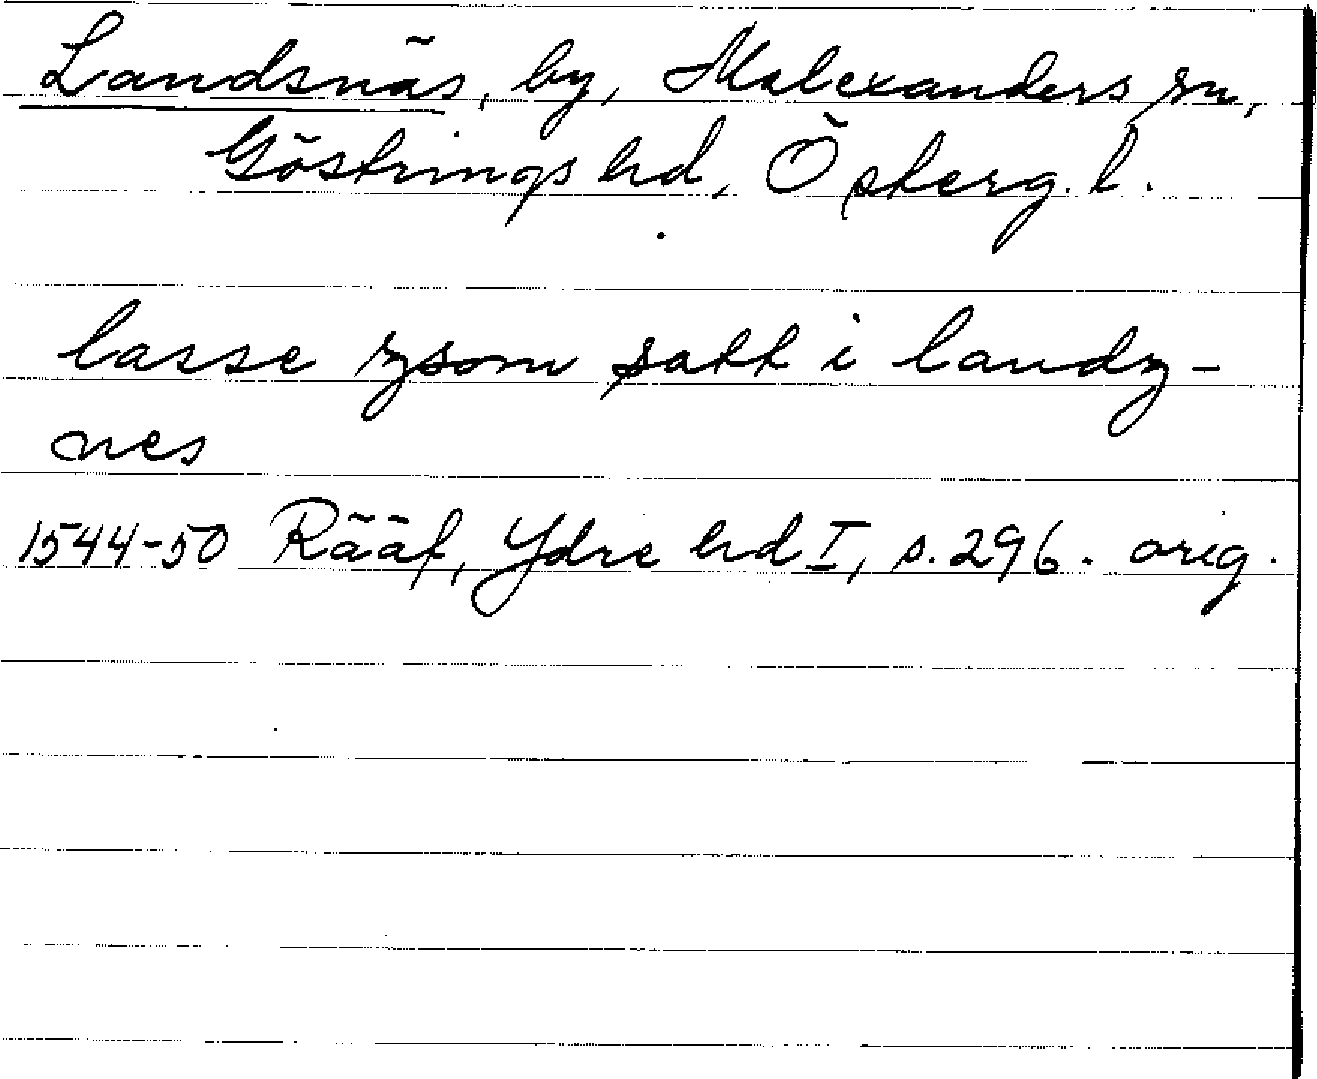 Landsnäs, by, Malexanders sn,
Göstrings hd, Österg. l.
lasse zsom satt i landz-
nes
1544-50 Rääf, Ydre hd I, s. 296. orig.